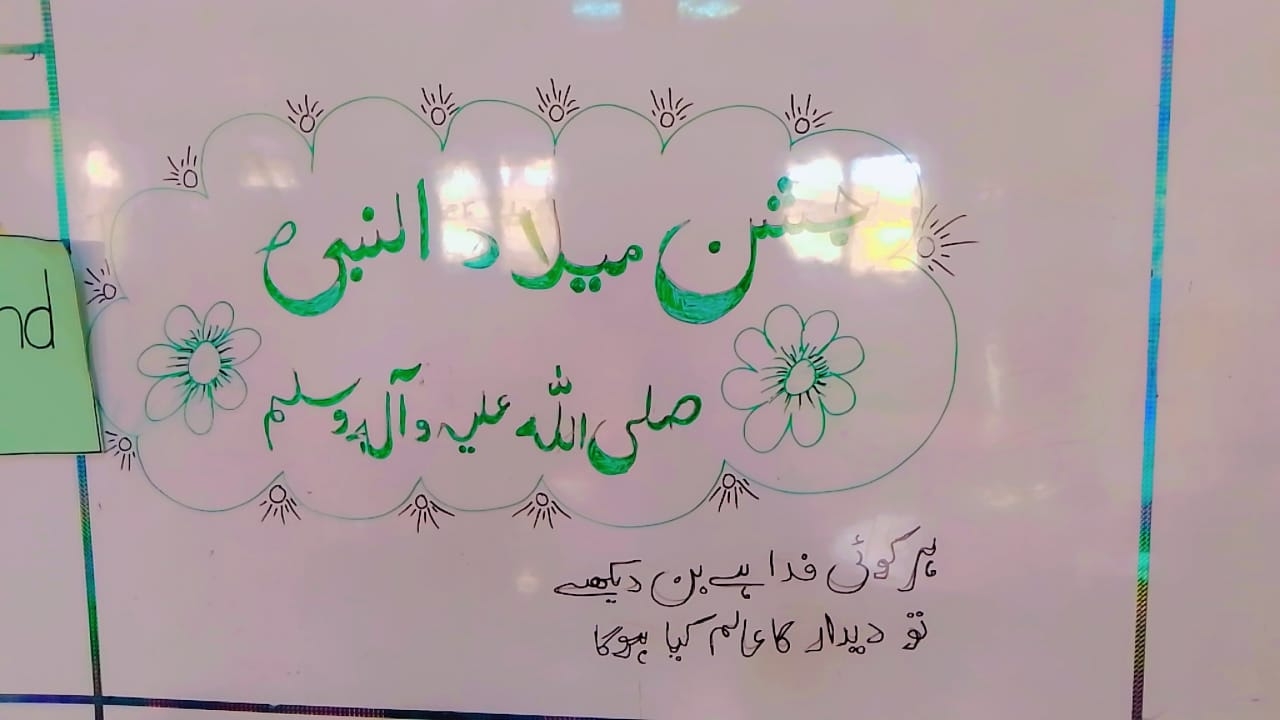 جشن میلاد النبیؐ
صلی اللہ علیہ وآلہ وسلم
ہر کوئی فدا ہے بن دیکھے
تو دیدار کا عالم کیا ہوگا
nd